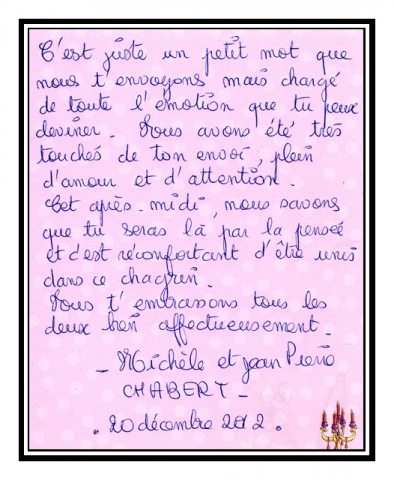 C'est juste un petit mot que
nous t'envoyons mais chargé
de toute l'émotion que tu peux
deviner. Nous avons été très
touchés de ton envoi, plein
d'amour et d'attention.
Cet après-midi, nous savons
que tu seras là par la pensée
et c'est réconfortant d'être unis
dans ce chagrin.
Nous t'embrassons tous les
deux bien affectueusement.
- Michèle et Jean Pierre
CHABERT -
. 20 décembre 2012.